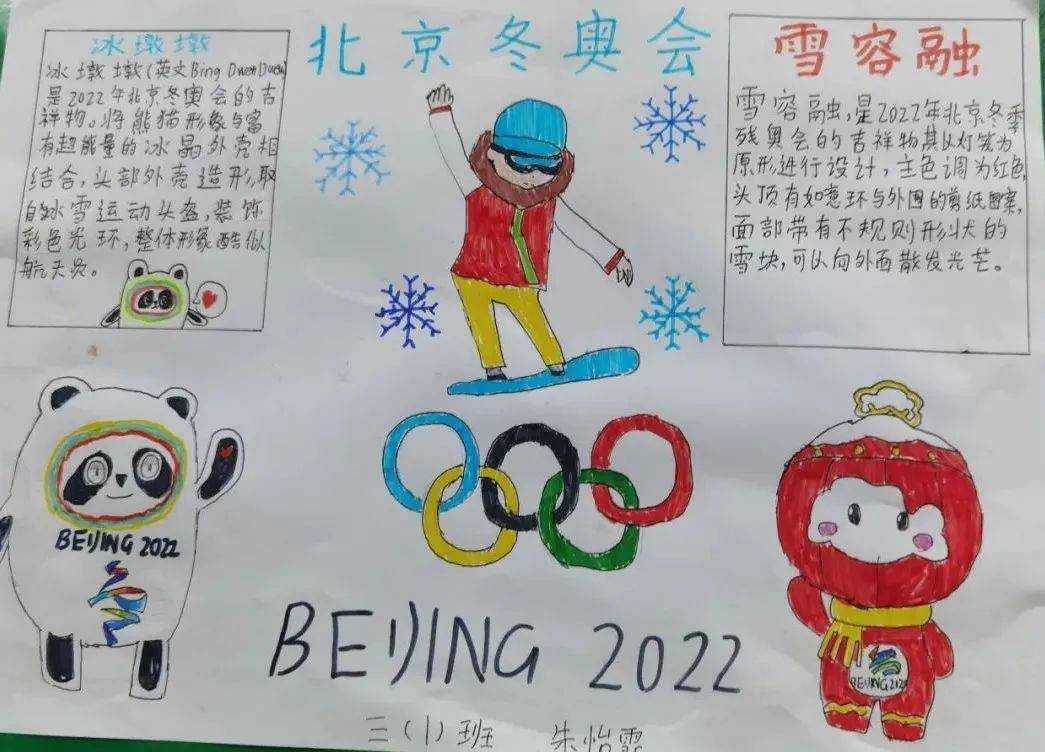 北京冬奥会
冰墩墩
冰墩墩(英文Bing Dwen Dwen)
是2022年北京冬奥会的吉
祥物。将熊猫形象与富
有超能量的冰晶外壳相
结合,头部外壳造形取
自冰雪运动头盔,装饰
彩色光环,整体形象酷似
航天员。
雪容融
雪容融,是2022年北京冬季
残奥会的吉祥物其以灯笼为
原形进行设计,主色调为红色,
头顶有如意环与外围的剪纸图案,
面部带有不规则形状的
雪块,可以向外面散发光芒。
BEIJING 2022
BEIJING 2022
BEIJING 202
三(1)班 朱怡霏